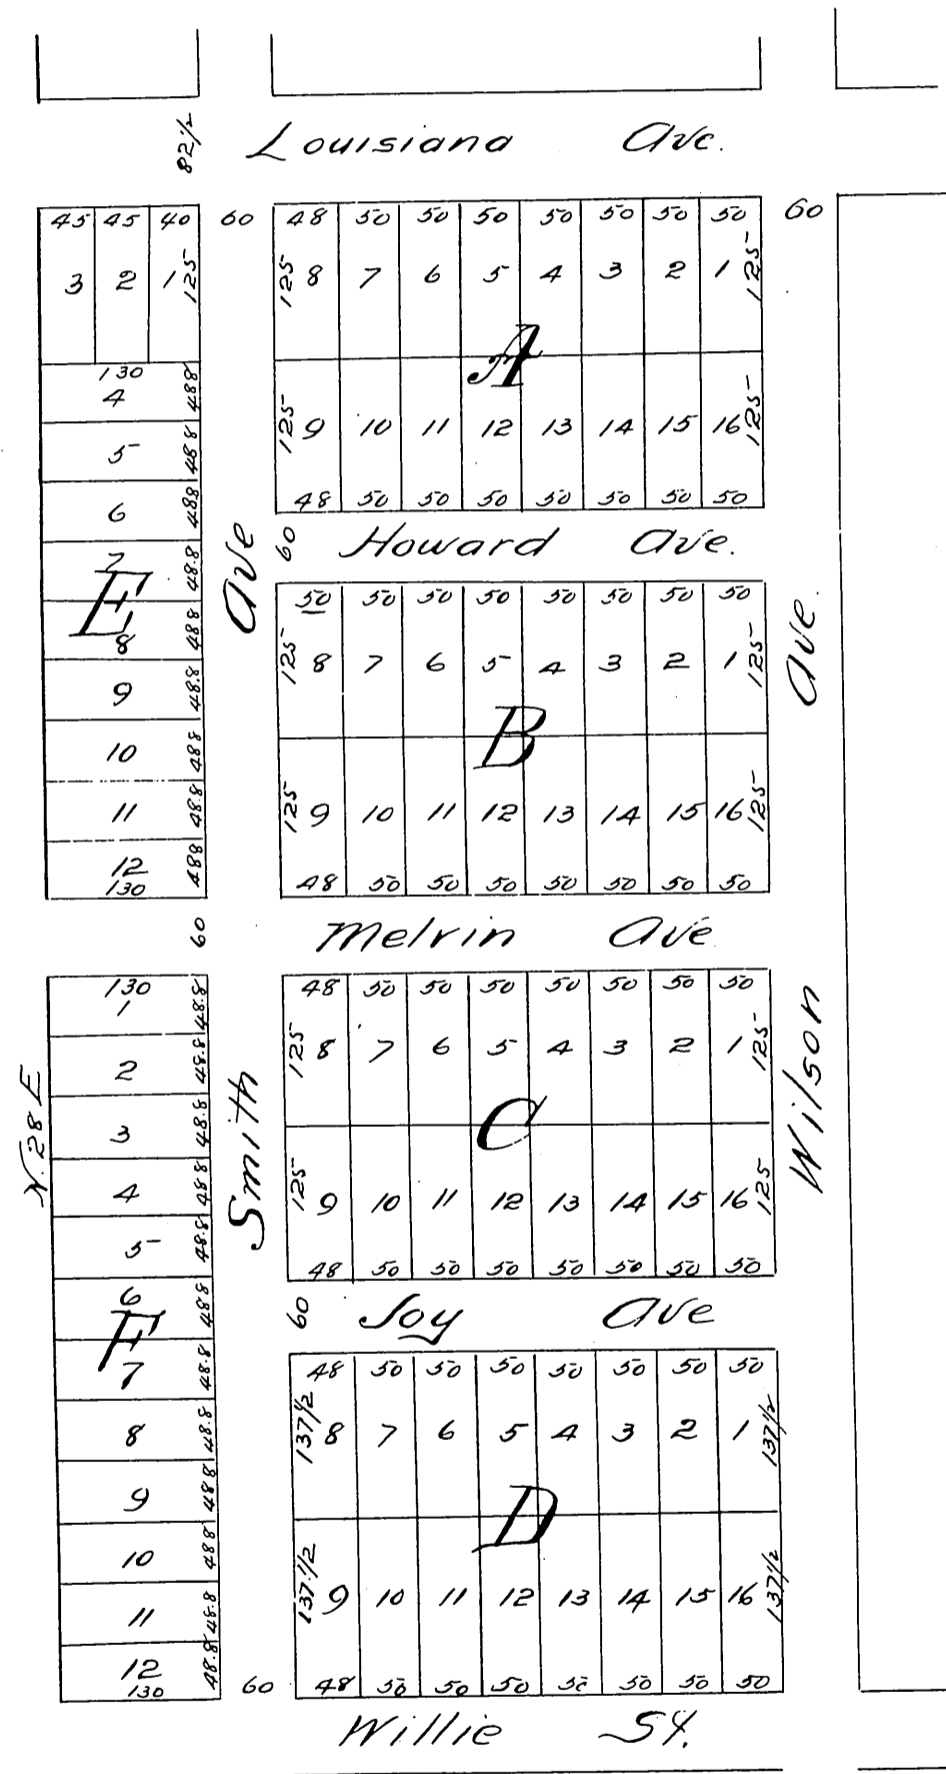 82½
Louisiana Ave.
45 45 40 60 48 50 50 50 50 50 50 50 60
3 2 1 125 125 8 7 6 5 4 3 2 1 125
A
130
4 488
5 488
6 488
7 48.8
E
8 488
9 48.8
10 488
11 48.8
12 488
130
125 9 10 11 12 13 14 15 16 125
48 50 50 50 50 50 50 50
60 Howard Ave.
50 50 50 50 50 50 50 50
125 8 7 6 5 4 3 2 1 125
B
125 9 10 11 12 13 14 15 16 125
48 50 50 50 50 50 50 50
60 Melvin Ave
Smith Ave
Wilson Ave.
N. 28 E
130
1 48.8
2 48.8
3 48.8
4 488
5 48.8
6 488
F
7 48.8
8 48.8
9 488
10 488
11 48.8
12 48.8
130
48 50 50 50 50 50 50 50
125 8 7 6 5 4 3 2 1 125
C
125 9 10 11 12 13 14 15 16 125
48 50 50 50 50 50 50 50
60 Joy Ave
48 50 50 50 50 50 50 50
137½ 8 7 6 5 4 3 2 1 137½
D
137½ 9 10 11 12 13 14 15 16 137½
60 48 50 50 50 50 50 50 50
Willie St.